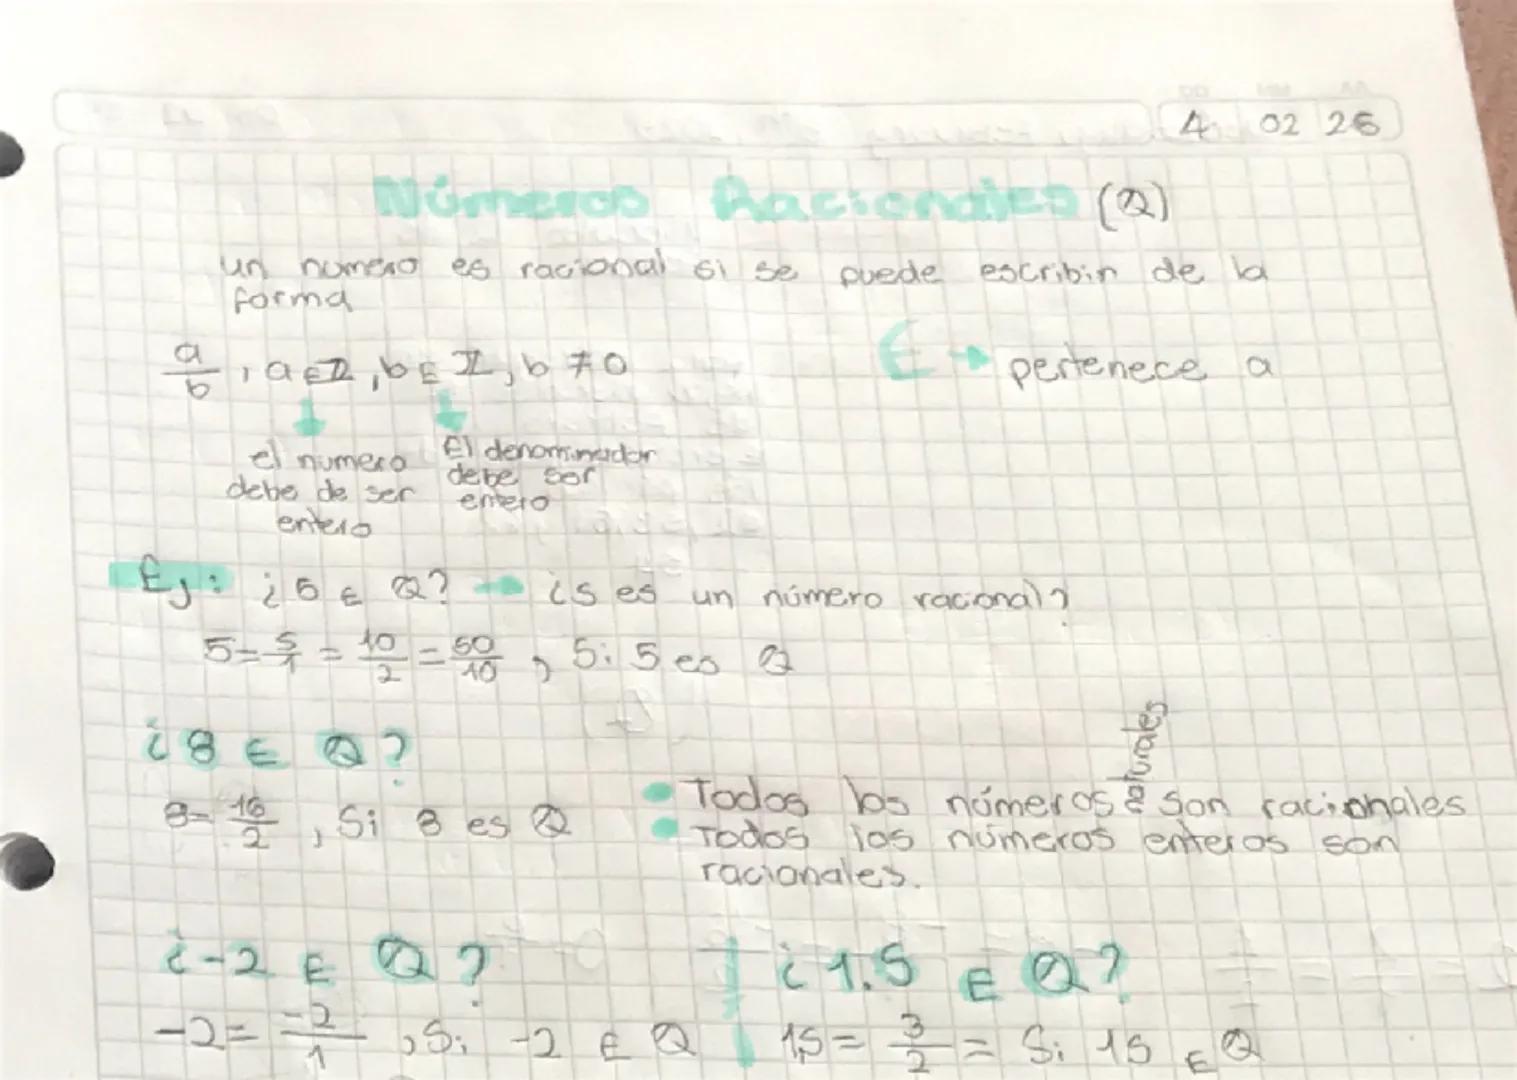 DD MM AA
4 02 26
Números Racionales (Q)
un numero es racional si se puede escribir de la
forma
a/b , a ∈ Z , b ∈ Z , b ≠ 0
∈ → pertenece a
el numero
debe de ser
entero
El denominador
debe ser
entero
Ej: ¿5 ∈ Q? → ¿5 es un número racional?
5 = 5/1 = 10/2 = 50/10 , Si 5 es Q
¿8 ∈ Q?
8 = 16/2 , Si 8 es Q
• Todos los números naturales son racionales
• Todos los números enteros son
racionales.
¿-2 ∈ Q?
-2 = -2/1 , Si -2 ∈ Q
¿1.5 ∈ Q?
1,5 = 3/2 = Si 15 ∈ Q